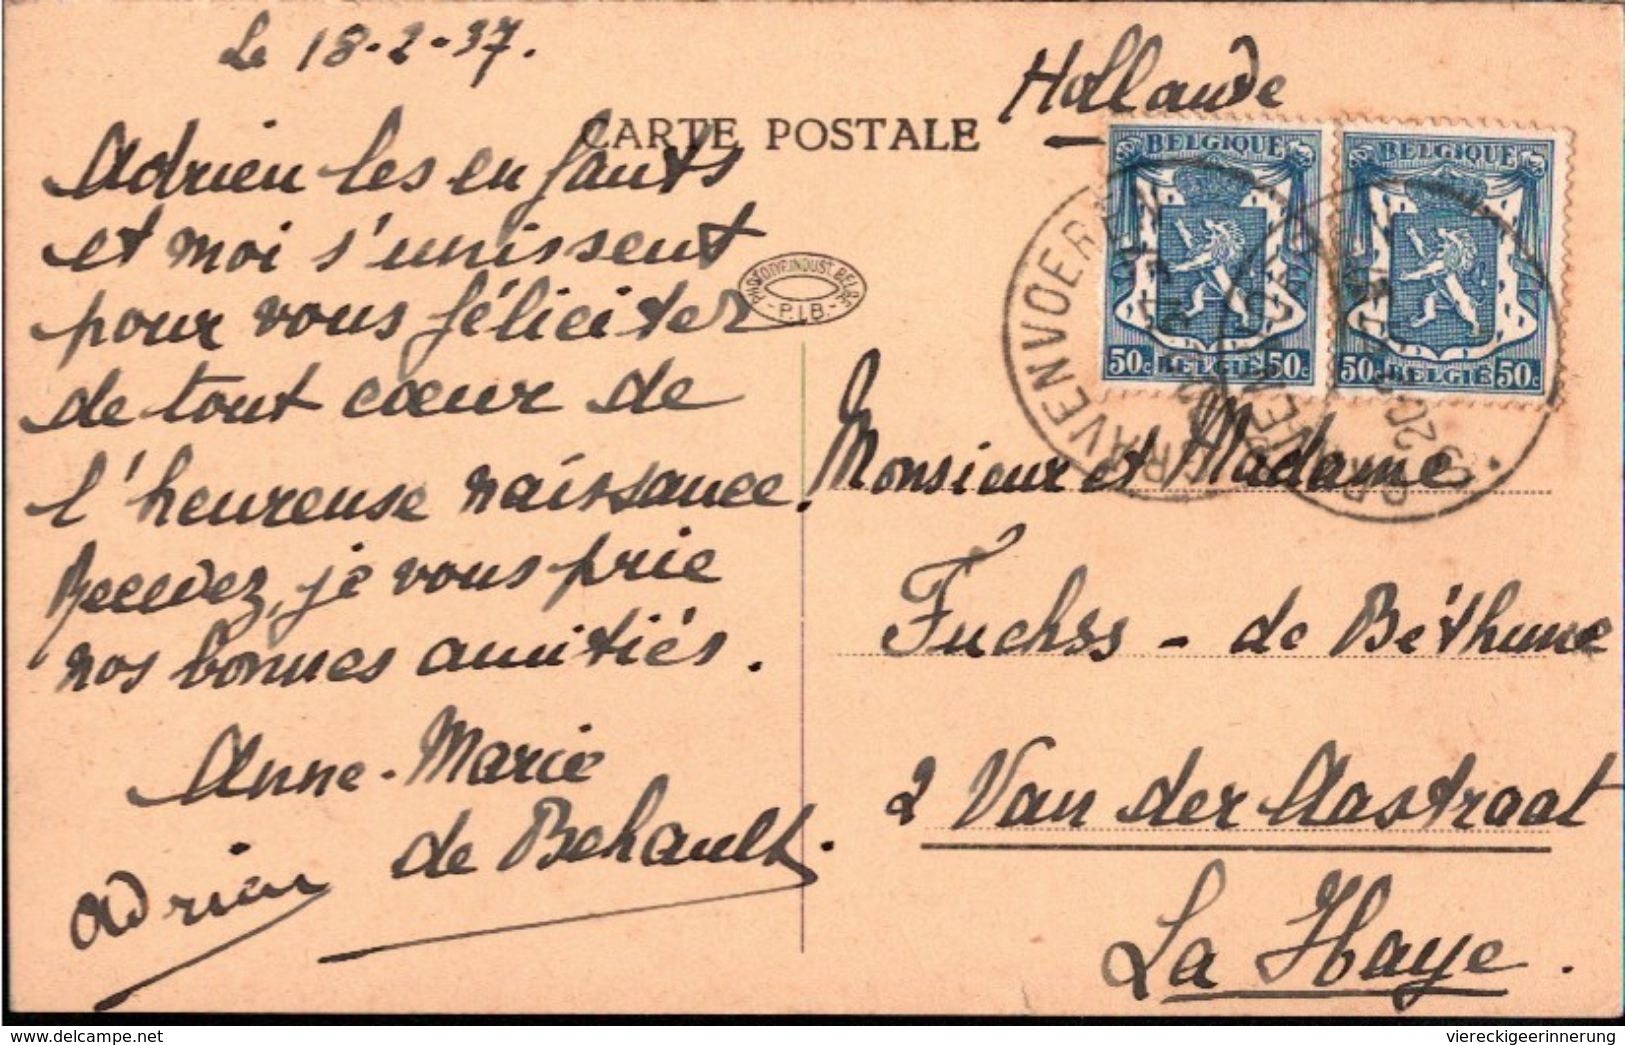 Le 18-2-37.
Adrien les enfants
et moi s'unissent
pour vous féliciter
de tout cœur de
l'heureuse naissance.
Recevez, je vous prie
nos bonnes amitiés.
Anne-Marie
de Behault.
Adrien
CARTE POSTALE
PHOTOTYP. INDUST. BELGE
- P.I.B. -
Hollande
BELGIQUE
50c BELGIË 50c
BELGIQUE
50c BELGIË 50c
'S GRAVENVOEREN
Monsieur et Madame
Fuchss - de Béthune
2 Van der Aastraat
La Haye.
delcampe.net
viereckigeerinnerung